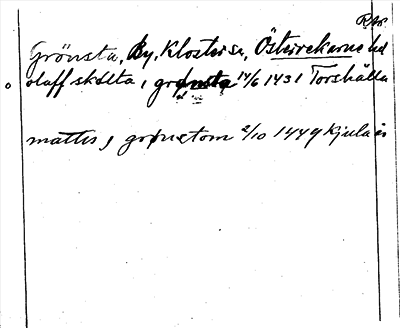 RAp.
Grönsta, By, Kloster sn, Österrekarne hd
olaff skolta, i grønsta 14/6 1431 Torshälla
mattis, i grønstom 2/10 1449 Kjula